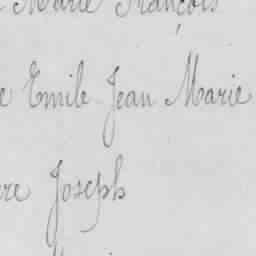 Marie François
e Emile Jean Marie
re Joseph